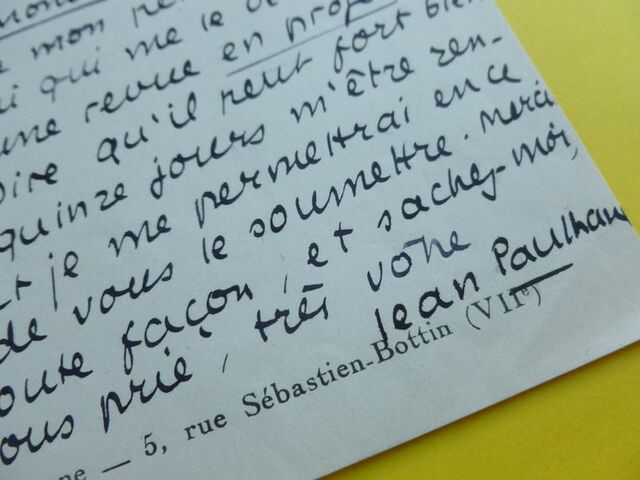 mon
i qui me le
une revue en proje
oire qu'il peut fort bien
quinze jours m'être ren-
t je me permettrai en ce
de vous le soumettre. Merci
oute façon, et sachez-moi,
ous prie, très vôtre
Jean Paulhan
ne — 5, rue Sébastien-Bottin (VIIe)